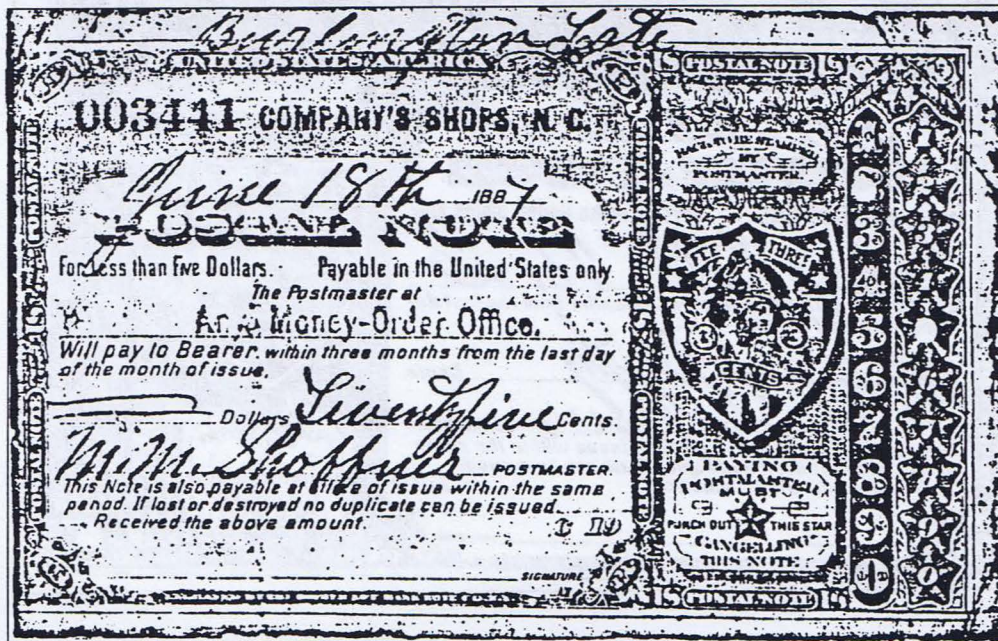 Burlington Late
UNITED STATES AMERICA
003441 COMPANY'S SHOPS, N.C.
June 18th 1887
POSTAL NOTE
For Less than Five Dollars. Payable in the United States only.
The Postmaster at
Any Money-Order Office.
Will pay to Bearer, within three months from the last day
of the month of issue.
Dollars Twenty five Cents.
M. M. Shoffner POSTMASTER.
This Note is also payable at office of issue within the same
period. If lost or destroyed no duplicate can be issued.
Received the above amount.
SIGNATURE
POSTAL NOTE
POSTMASTER
FEE THREE
3 3
CENTS
PAYING
POSTMASTER
MUST
PUNCH OUT THIS STAR
CANCELLING
THIS NOTE
POSTAL NOTE
1
2
3
4
5
6
7
8
9
0